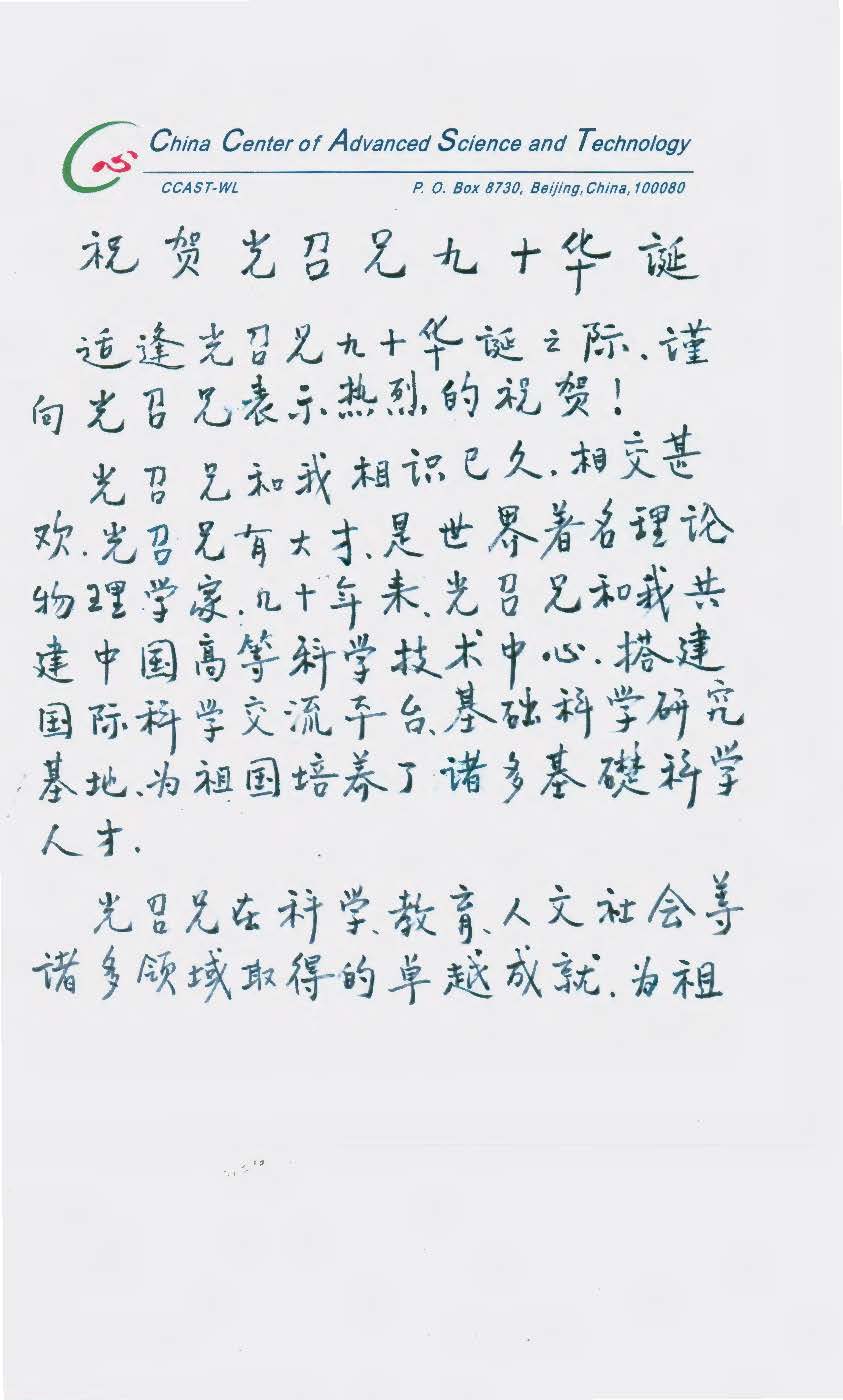 China Center of Advanced Science and Technology
CCAST-WL P. O. Box 8730, Beijing, China, 100080
祝贺光召兄九十华诞
适逢光召兄九十华诞之际、谨
向光召兄表示热烈的祝贺！
光召兄和我相识已久.相交甚
欢.光召兄有大才、是世界著名理论
物理学家.九十年来、光召兄和我共
建中国高等科学技术中心.搭建
国际科学交流平台、基础科学研究
基地、为祖国培养了诸多基礎科学
人才.
光召兄在科学、教育、人文社会等
诸多领域取得的卓越成就.为祖